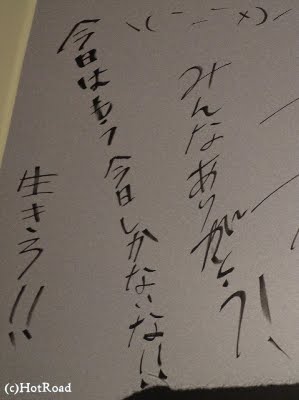 \(ー_ー×)ノ
みんなありがとう!
今日はもう今日しかないな!!
生きろ!!
(c)HotRoad